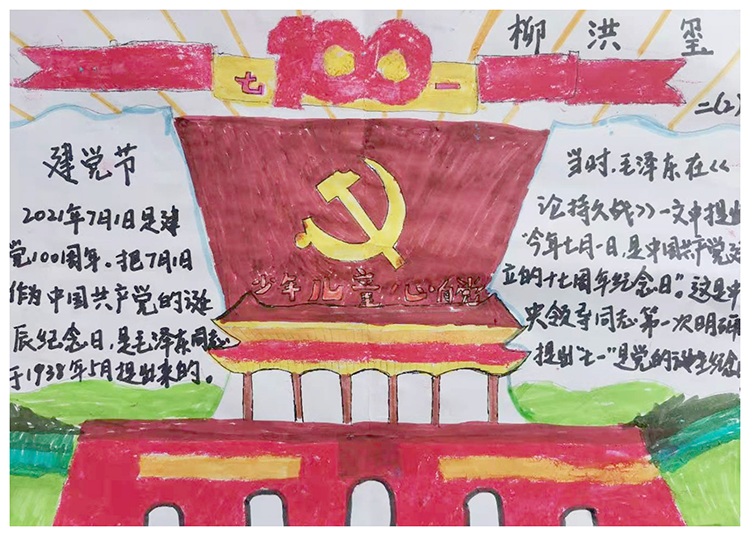 柳洪玺
七100一
二(2)
建党节
2021年7月1日是建
党100周年。把7月1日
作为中国共产党的诞
辰纪念日,是毛泽东同志
于1938年5月提出来的。
少年儿童心向党
当时,毛泽东在《
论持久战》一文中提出
"今年七月一日,是中国共产党建
立的十七周年纪念日"。这是中
央领导同志第一次明确
提出"七一"是党的诞生纪念